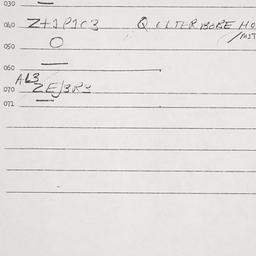 030
040 Z+1P1C3 Q ULTER BORE HO
/MIT
050 O
060
AL3
070 ZEJ3R3
071